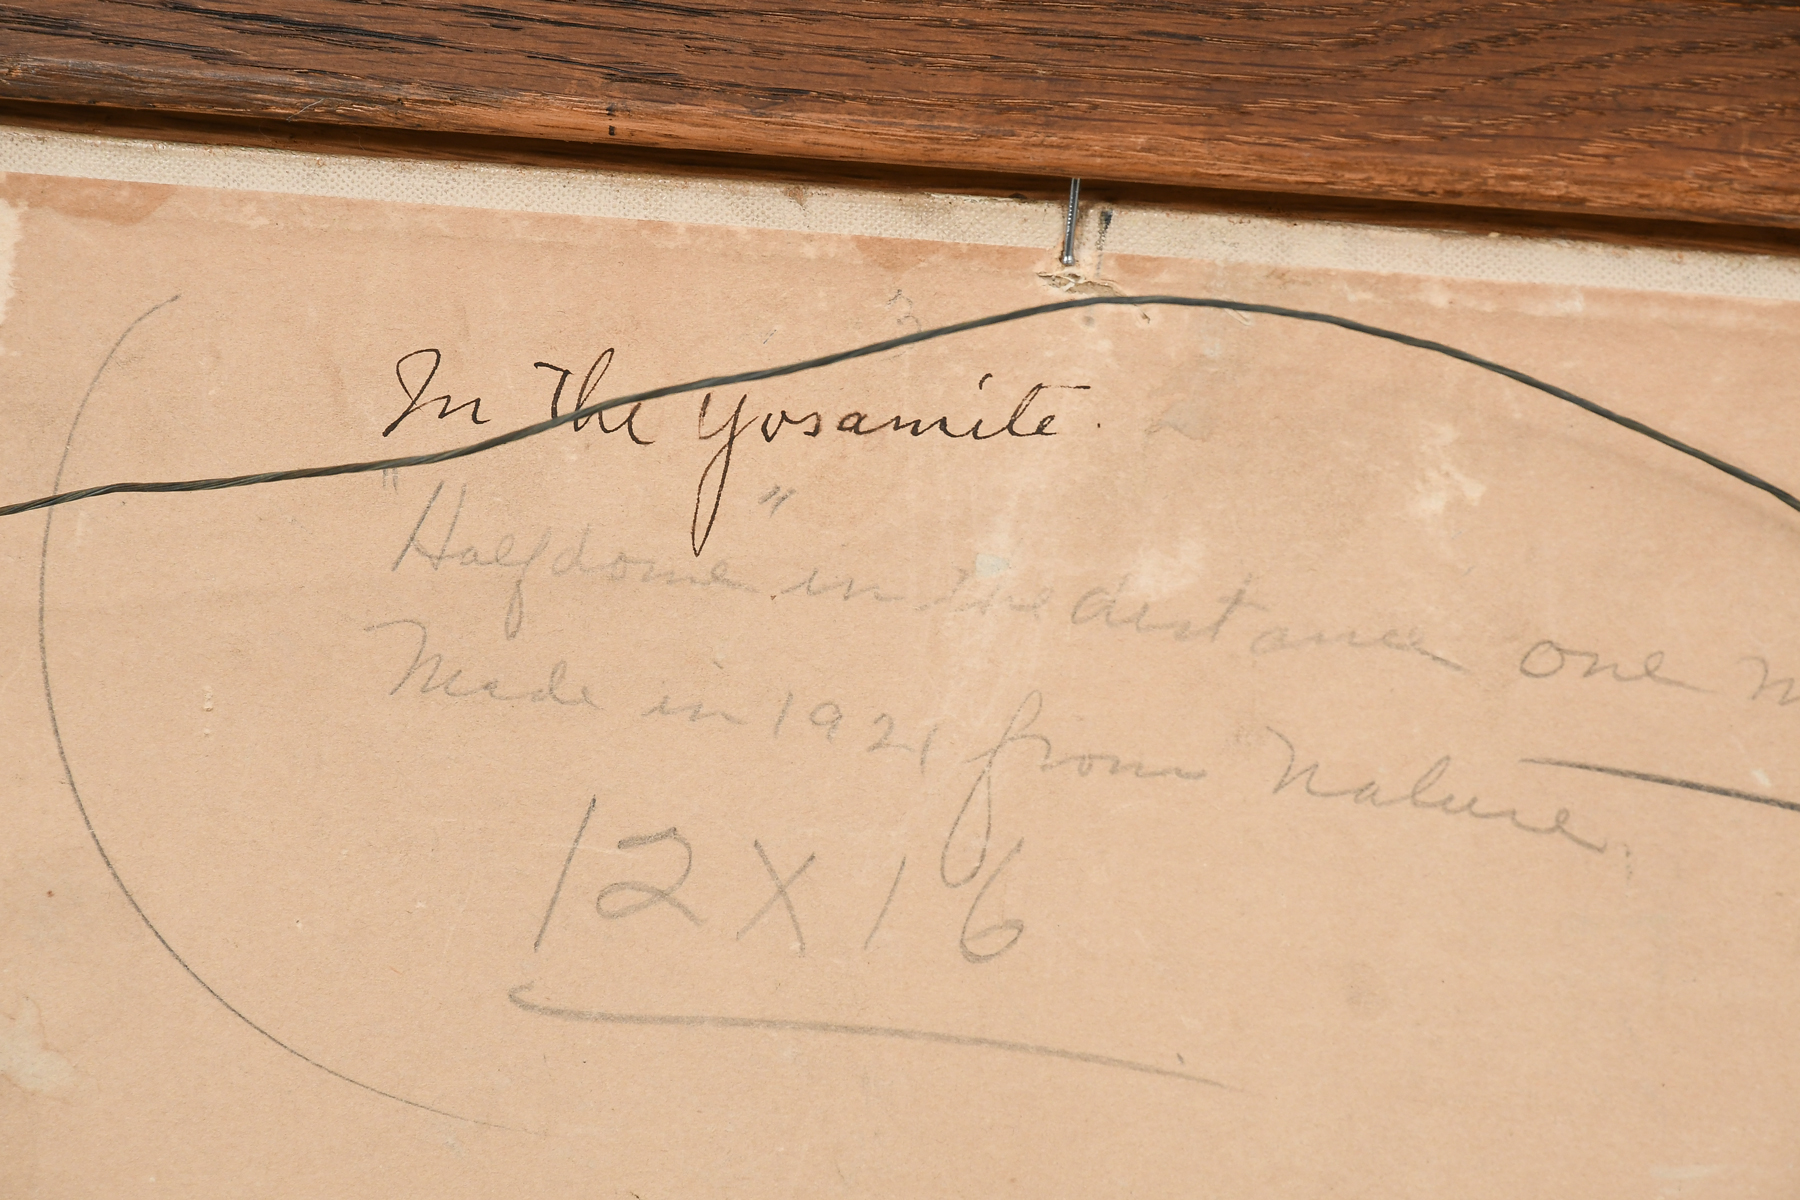 In the Yosamite.
"Halfdome" in the distance one m
Made in 1921 from Nature.
12 X 16